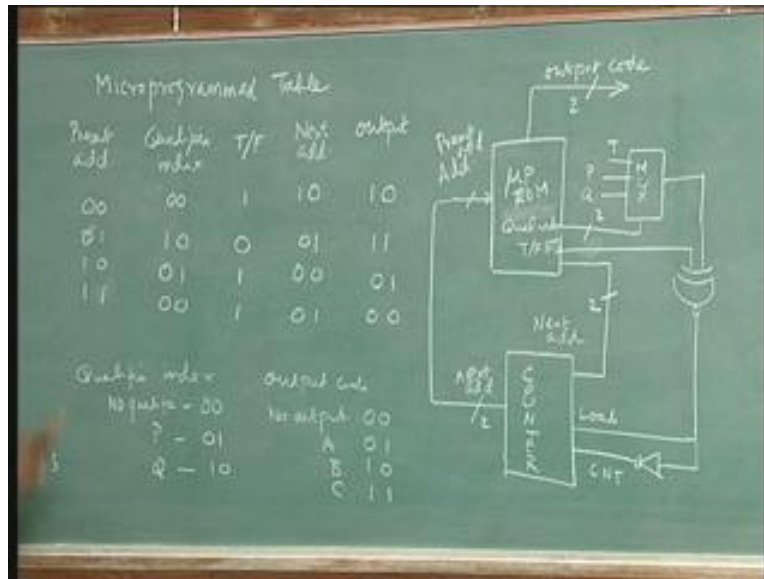 Microprogrammed Table
Present add Qualifier index T/F Next add output
00 00 1 10 10
01 10 0 01 11
10 01 1 00 01
11 00 1 01 00
Qualifier index
No qualifier - 00
P - 01
Q - 10
output code
No output 00
A 01
B 10
C 11
output code
2
Present Add
MP ROM
T/F
2
1
P
Q
MUX
2
Next add
add
2
COUNTER
Load
CNT